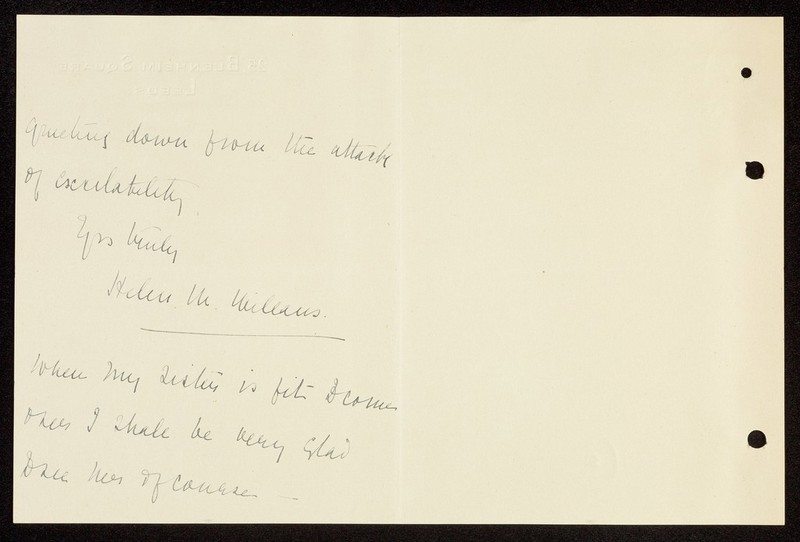 11 BLENHEIM SQUARE
LEEDS.
quieting down from the attack
of excitability.
Yrs truly
Helen M. Williams.
When my Sister is fit to come
over I shall be very glad
to see her of course —